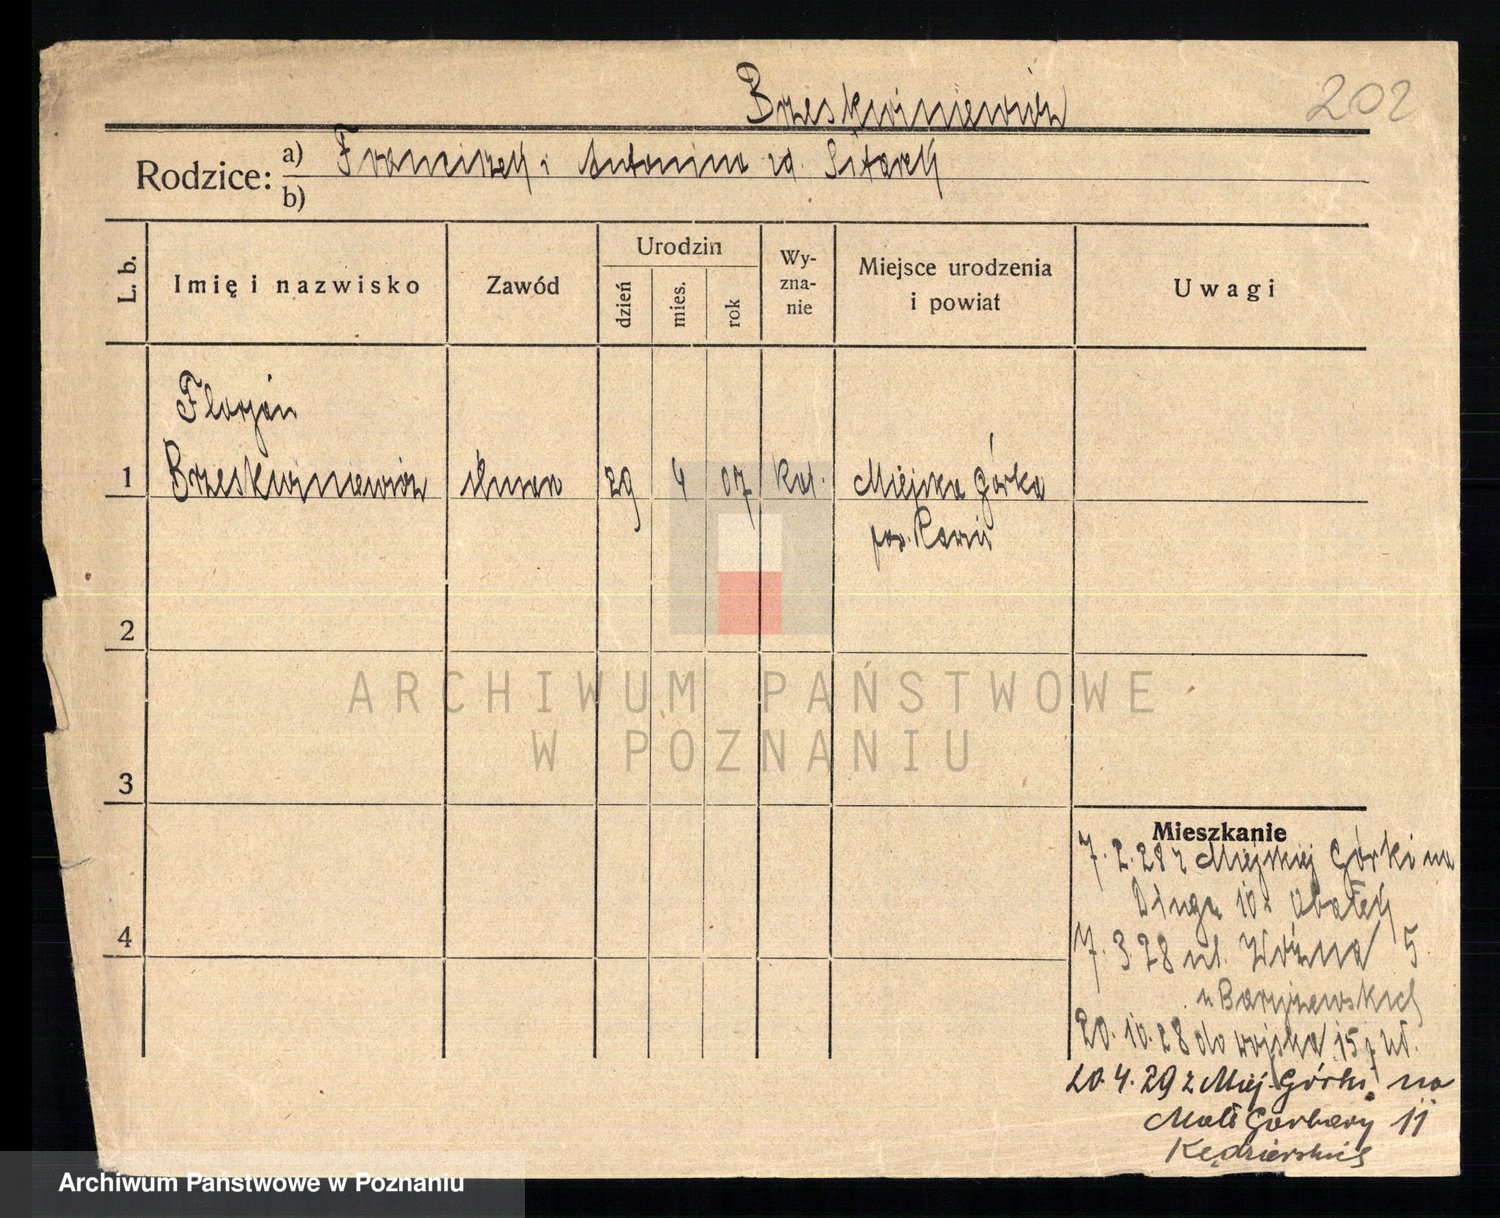 Brzeskwiniewicz
202
Rodzice: a) Franciszek i Antonina zd. Sitarek
b)
L. b.
Imię i nazwisko
Zawód
Urodzin
dzień
mies.
rok
Wy-
zna-
nie
Miejsce urodzenia
i powiat
Uwagi
Florjan
1 Brzeskwiniewicz 29 4 07 kat. Miejska Górka
pow. Rawicz
2
3
4
Mieszkanie
7.2.28 z Miejskiej Górki na
Długa 10
7.3.28 ul. Woźna 5
20.10.28 do wojska 15 p. uł.
20.4.29 z Miej. Górki na
Małe Garbary 11
Kędzierskich
ARCHIWUM PAŃSTWOWE
W POZNANIU
Archiwum Państwowe w Poznaniu